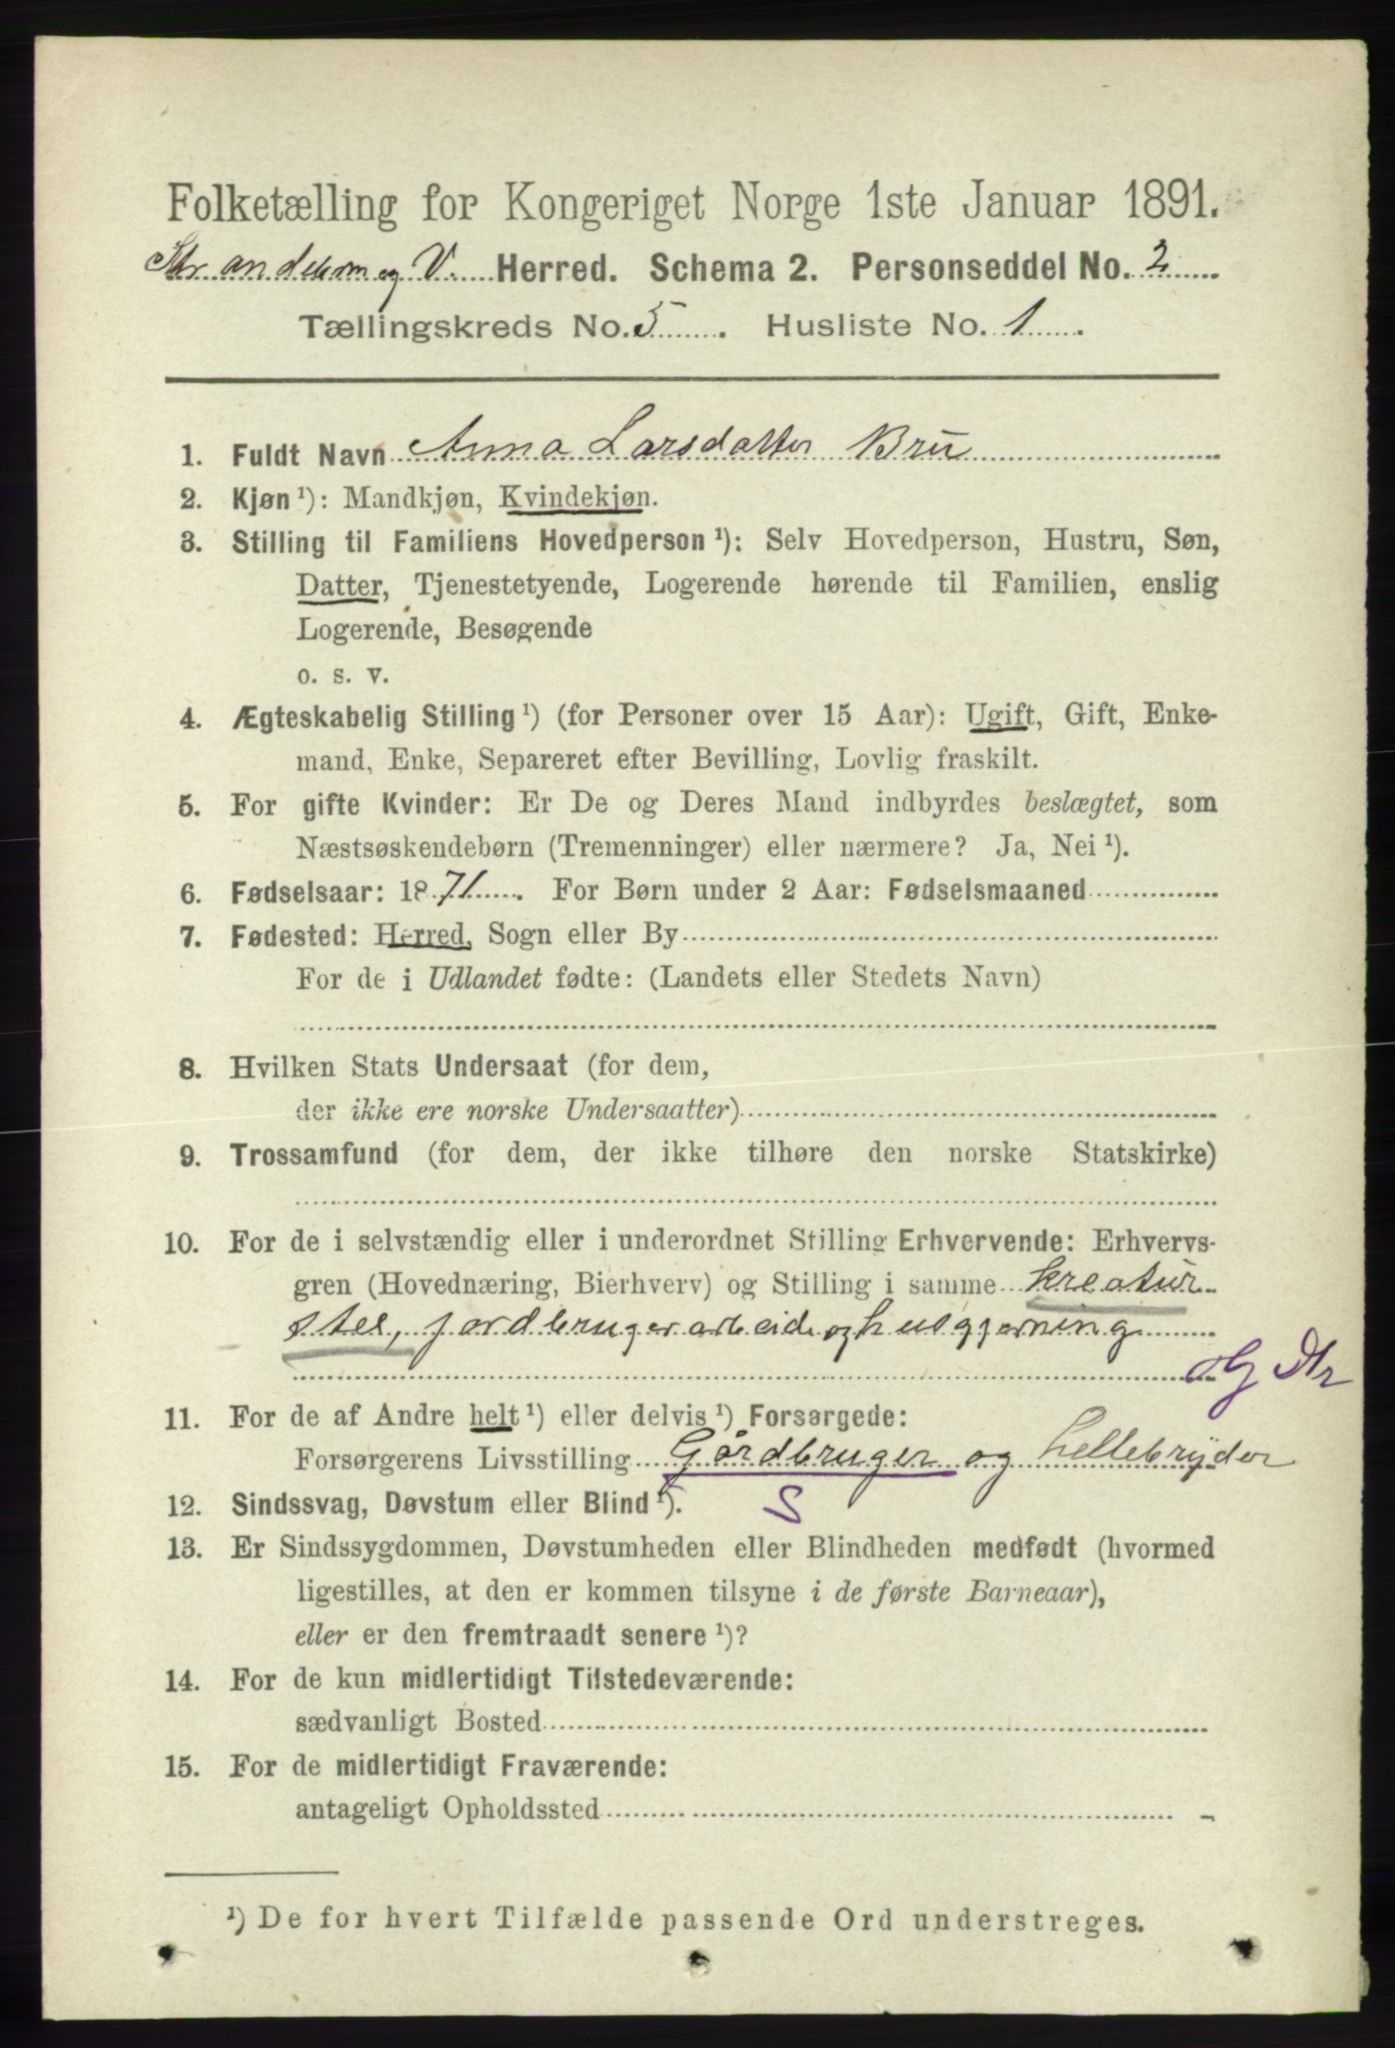 Folketælling for Kongeriget Norge 1ste Januar 1891.
Strandebarm og V. Herred. Schema 2. Personseddel No. 2
Tællingskreds No. 5. Husliste No. 1.
1. Fuldt Navn Anna Larsdatter Bru
2. Kjøn ¹): Mandkjøn, Kvindekjøn.
3. Stilling til Familiens Hovedperson ¹): Selv Hovedperson, Hustru, Søn,
Datter, Tjenestetyende, Logerende hørende til Familien, enslig
Logerende, Besøgende
o. s. v.
4. Ægteskabelig Stilling ¹) (for Personer over 15 Aar): Ugift, Gift, Enke-
mand, Enke, Separeret efter Bevilling, Lovlig fraskilt.
5. For gifte Kvinder: Er De og Deres Mand indbyrdes beslægtet, som
Næstsøskendebørn (Tremenninger) eller nærmere? Ja, Nei ¹).
6. Fødselsaar: 1871. For Børn under 2 Aar: Fødselsmaaned
7. Fødested: Herred, Sogn eller By
For de i Udlandet fødte: (Landets eller Stedets Navn)
8. Hvilken Stats Undersaat (for dem,
der ikke ere norske Undersaatter)
9. Trossamfund (for dem, der ikke tilhøre den norske Statskirke)
10. For de i selvstændig eller i underordnet Stilling Erhvervende: Erhvervs-
gren (Hovednæring, Bierhverv) og Stilling i samme kreatur
stel, jordbrugerarbeide og husgjerning
11. For de af Andre helt ¹) eller delvis ¹) Forsørgede:
Forsørgerens Livsstilling Gårdbruger og hellebryder
12. Sindssvag, Døvstum eller Blind ¹). S
13. Er Sindssygdommen, Døvstumheden eller Blindheden medfødt (hvormed
ligestilles, at den er kommen tilsyne i de første Barneaar),
eller er den fremtraadt senere ¹)?
14. For de kun midlertidigt Tilstedeværende:
sædvanligt Bosted
15. For de midlertidigt Fraværende:
antageligt Opholdssted
¹) De for hvert Tilfælde passende Ord understreges.